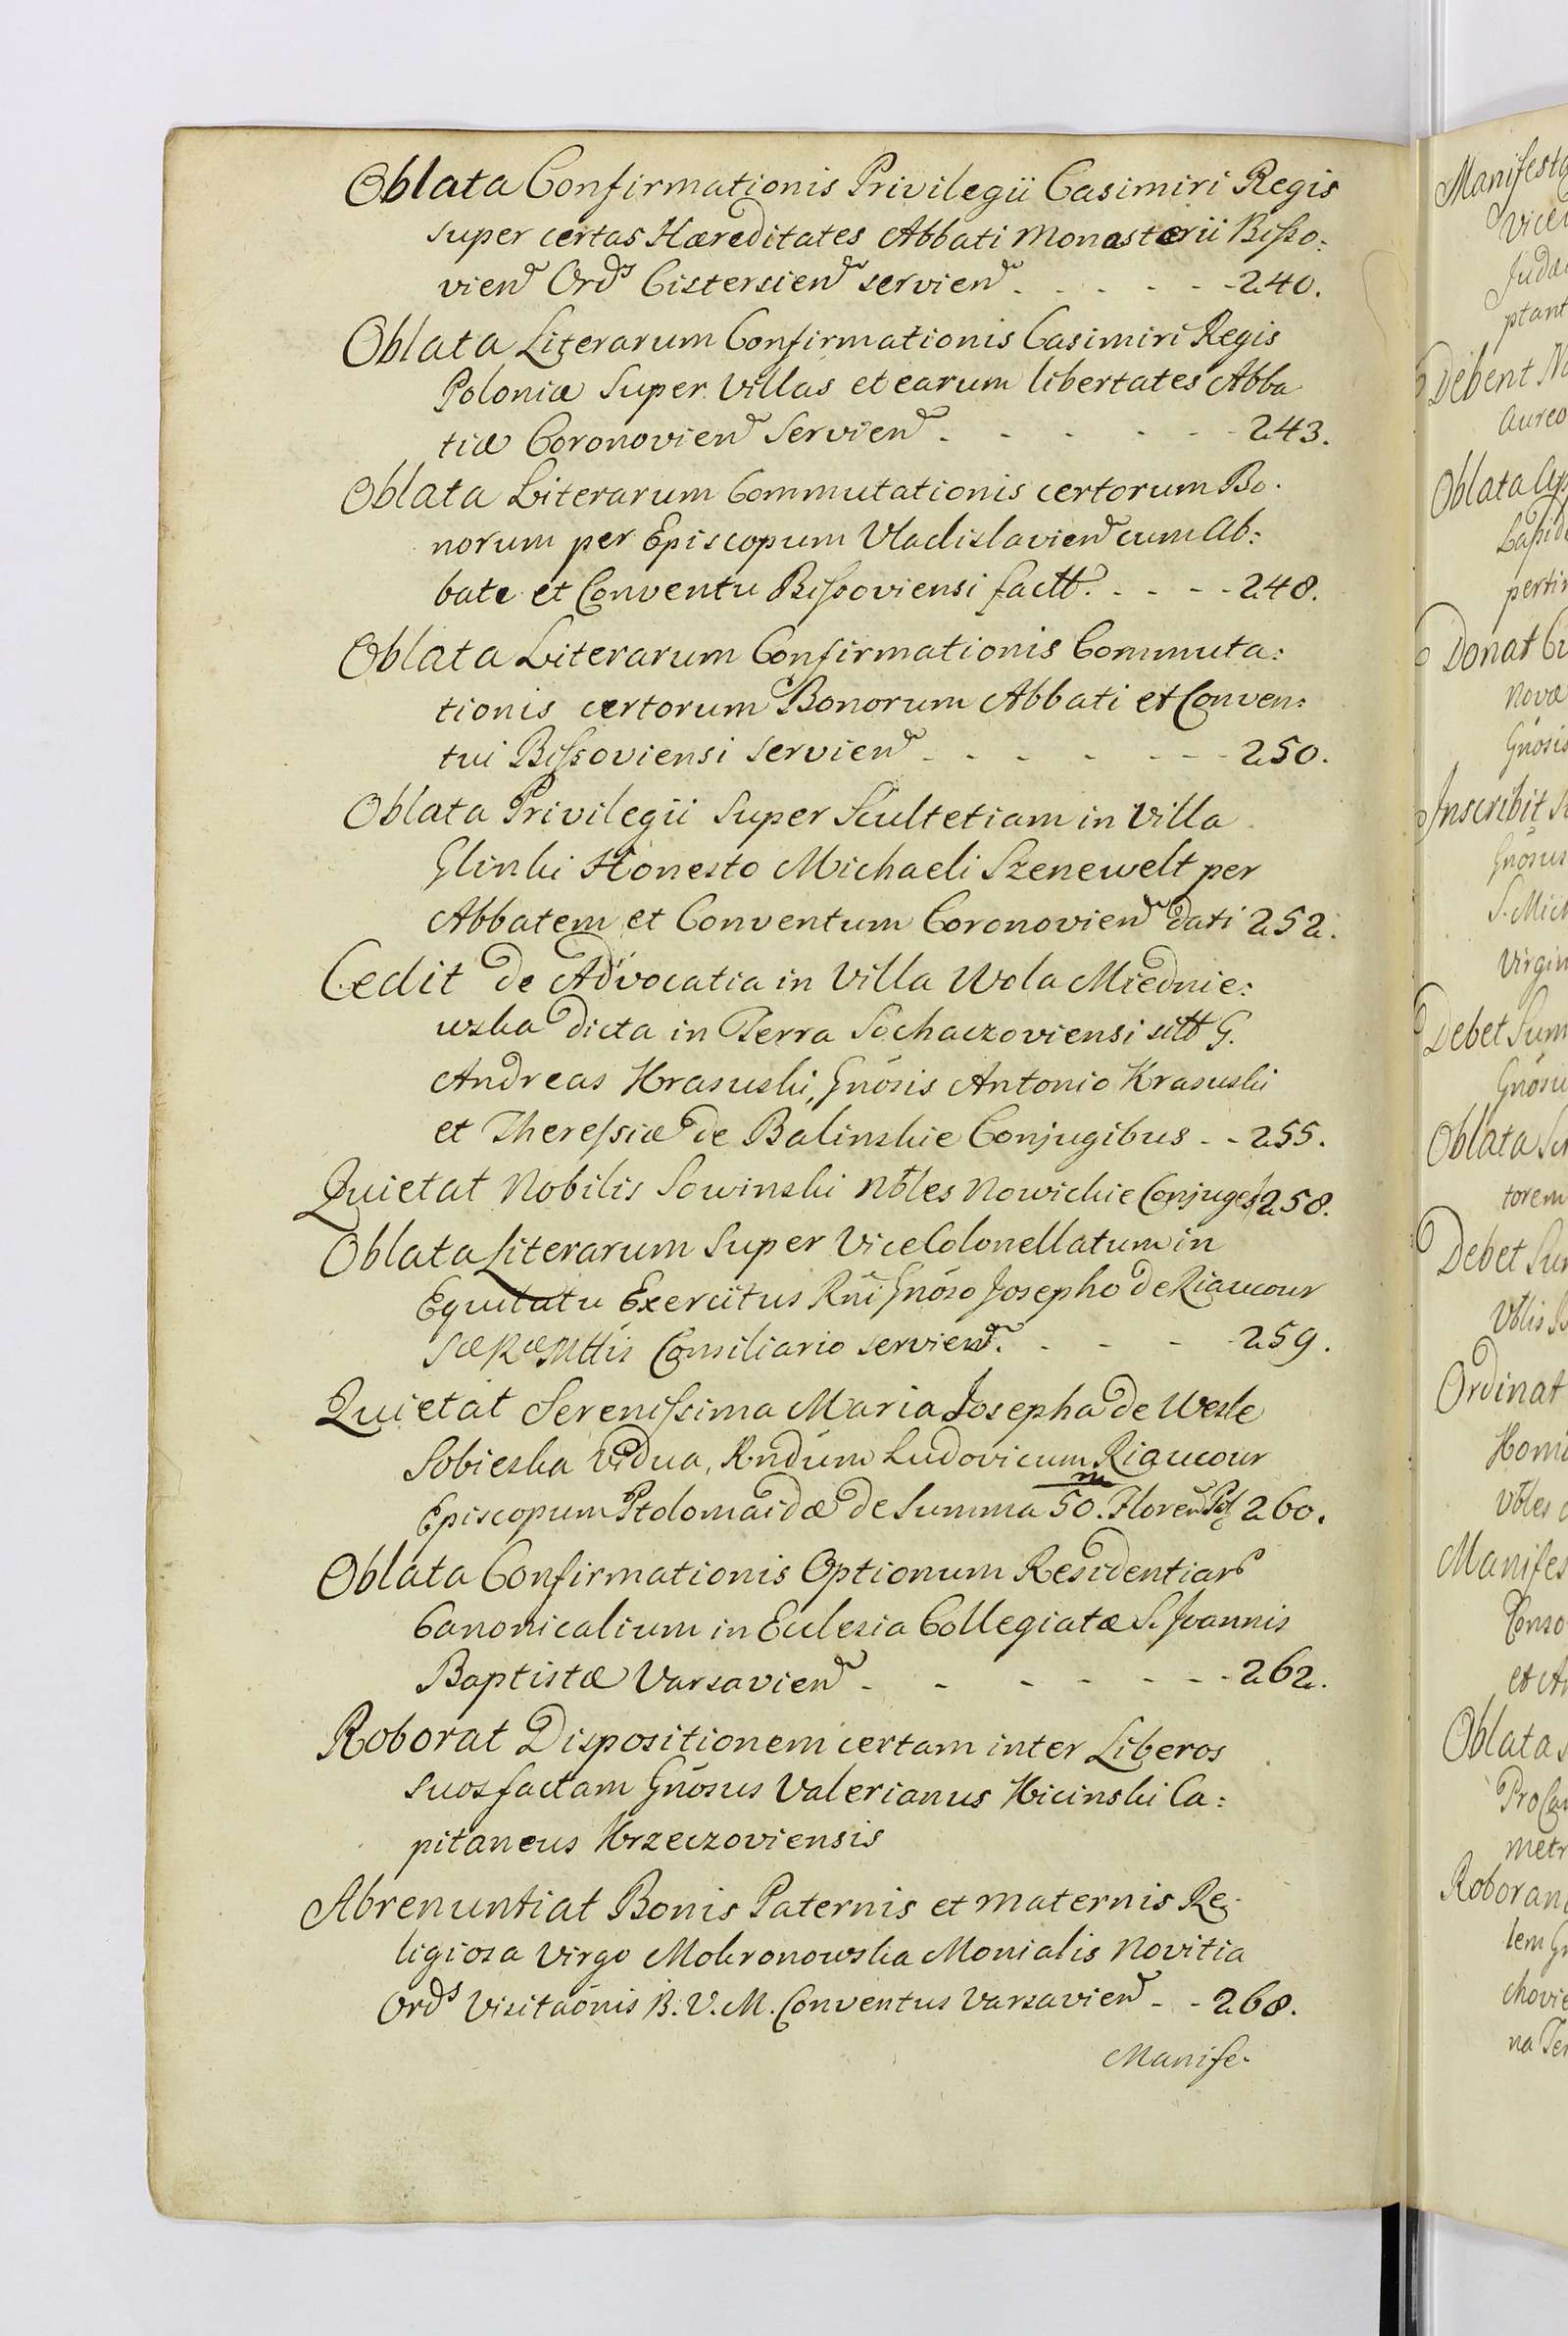 Oblata Confirmationis Privilegii Casimiri Regis
super certas Hæreditates Abbati Monasterii Bisso:
viens Ords Cistersiens serviens . - - - - 240.
Oblata Literarum Confirmationis Casimiri Regis
Poloniæ super Villas et earum libertates Abba
tiæ Coronoviens serviens . - - - - 243.
Oblata Literarum Commutationis certorum Bo.
norum per Episcopum Vladislaviens cum Ab:
bate et Conventu Bissoviensi factt. . - - - 248.
Oblata Literarum Confirmationis Commuta:
tionis certorum Bonorum Abbati et Conven:
tui Bissoviensi serviens - - - - - - 250.
Oblata Privilegii super Scultetiam in Villa
Glinki Honesto Michaeli Szenewelt per
Abbatem et Conventum Coronoviens dati 252.
Cedit de Advocatia in Villa Wola Miednie:
wska dicta in Terra Sochaczoviensi sitt G.
Andreas Krasuski, Gnosis Antonio Krasuski
et Theressiæ de Balinskie Conjugibus - - 255.
Quietat Nobilis Sowinski Nbles Nowickie Conjuges 258.
Oblata Literarum super ViceColonellatum in
Equitatu Exercitus Rni Gnoso Josepho de Riaucour
Sæ Ræ Mttis Consiliario serviens. . - - 259.
Quietat Serenissima Maria Josepha de Wesle
Sobieska Vidua, Rndum Ludovicum Riaucour
Episcopum Ptolomaidæ de Summa 50.m Florens Pol 260.
Oblata Confirmationis Optionum Residentiar
Canonicalium in Eclesia Collegiatæ S. Joannis
Baptistæ Varsaviens - - - - - - 262.
Roborat Dispositionem certam inter Liberos
suos factam Gnosus Valerianus Kicinski Ca:
pitaneus Krzeczoviensis
Abrenuntiat Bonis Paternis et Maternis Re:
ligiosa Virgo Mokronowska Monialis Novitia
Ords Visitaonis B. V. M. Conventus Varsaviens - - 268.
Manife-